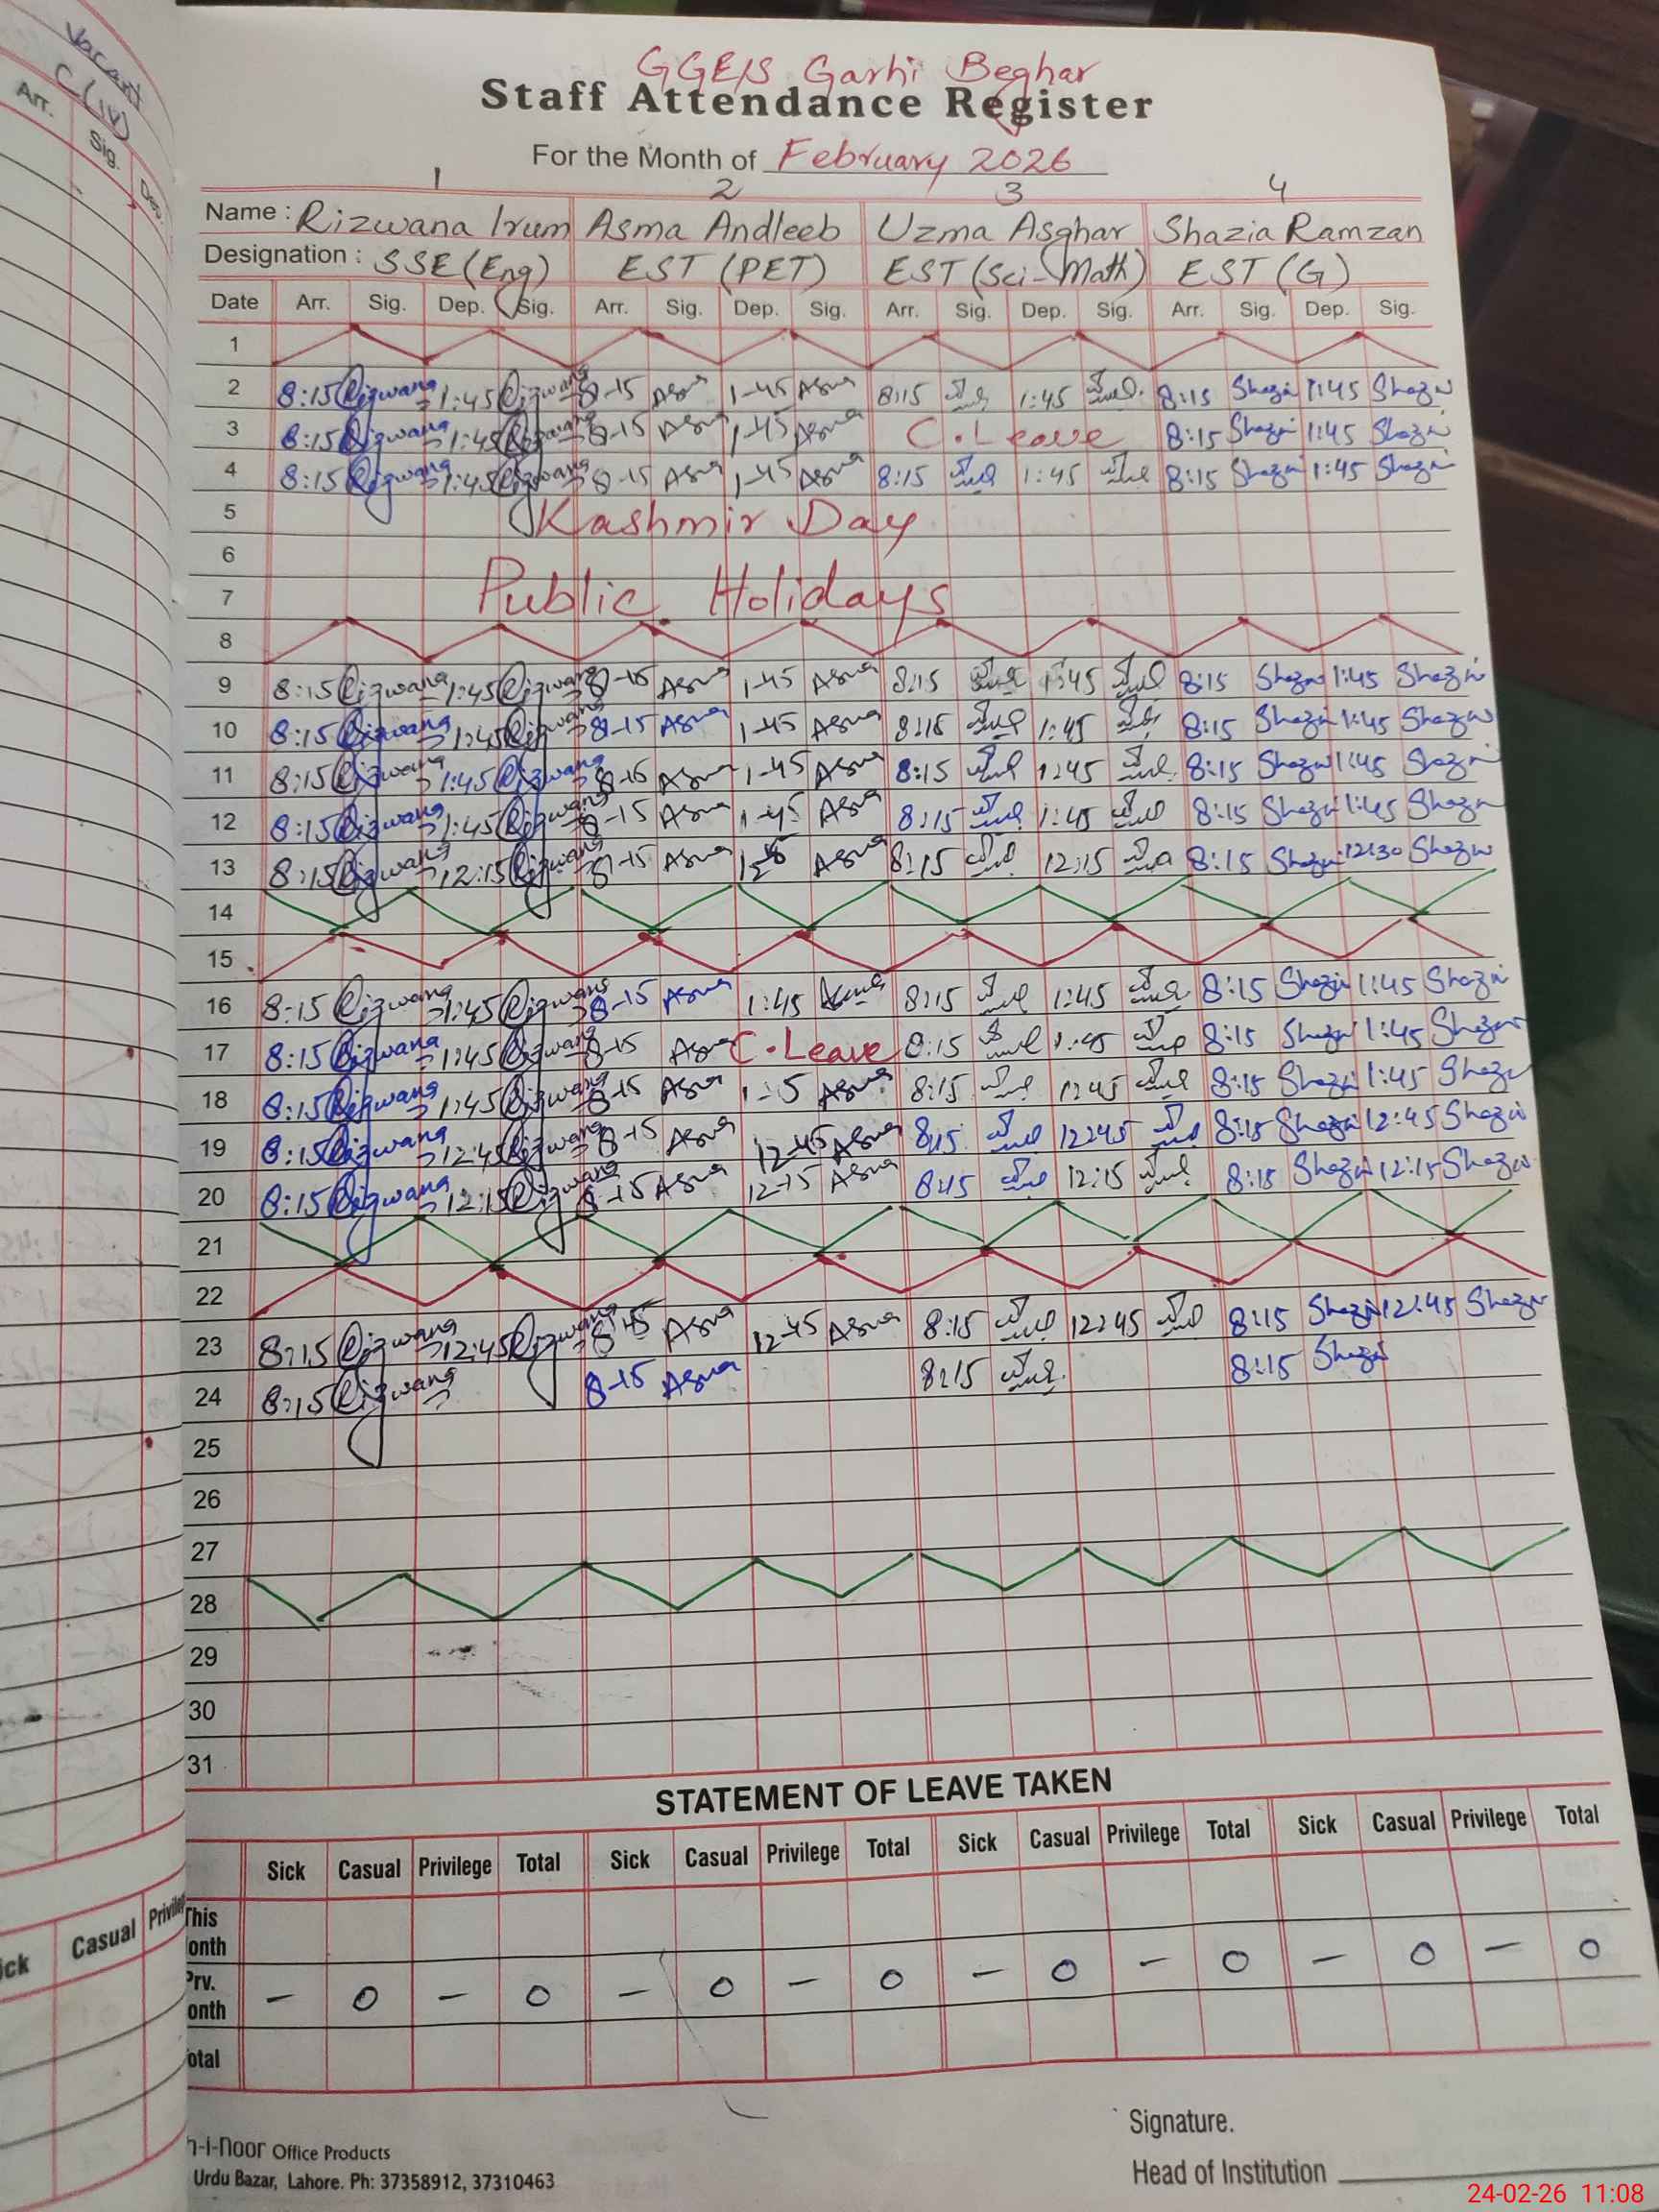 Vacant
C(IV)
Arr. Sig. Dep.
GGE/S Garhi Beghar
Staff Attendance Register
For the Month of February 2026
1 2 3 4
Name : Rizwana Irum Asma Andleeb Uzma Asghar Shazia Ramzan
Designation : SSE (Eng) EST (PET) EST (Sci-Math) EST (G)
Date Arr. Sig. Dep. Sig. Arr. Sig. Dep. Sig. Arr. Sig. Dep. Sig. Arr. Sig. Dep. Sig.
1
2 8:15 Rizwana 1:45 Rizwana 8-15 Asma 1-45 Asma 8:15 1:45 8:15 Shazia 1:45 Shazia
3 8:15 Rizwana 1:45 Rizwana 8-15 Asma 1-45 Asma C. Leave 8:15 Shazia 1:45 Shazia
4 8:15 Rizwana 1:45 Rizwana 8-15 Asma 1-45 Asma 8:15 1:45 8:15 Shazia 1:45 Shazia
5 Kashmir Day
6
7 Public Holidays
8
9 8:15 Rizwana 1:45 Rizwana 8-15 Asma 1-45 Asma 8:15 1:45 8:15 Shazia 1:45 Shazia
10 8:15 Rizwana 1:45 Rizwana 8-15 Asma 1-45 Asma 8:15 1:45 8:15 Shazia 1:45 Shazia
11 8:15 Rizwana 1:45 Rizwana 8-15 Asma 1-45 Asma 8:15 1:45 8:15 Shazia 1:45 Shazia
12 8:15 Rizwana 1:45 Rizwana 8-15 Asma 1-45 Asma 8:15 1:45 8:15 Shazia 1:45 Shazia
13 8:15 Rizwana 12:15 Rizwana 8-15 Asma Asma 8:15 12:15 8:15 Shazia 12:30 Shazia
14
15
16 8:15 Rizwana 1:45 Rizwana 8-15 Asma 1:45 Asma 8:15 1:45 8:15 Shazia 1:45 Shazia
17 8:15 Rizwana 1:45 Rizwana 8-15 Asma C. Leave 8:15 1:45 8:15 Shazia 1:45 Shazia
18 8:15 Rizwana 1:45 Rizwana 8-15 Asma Asma 8:15 1:45 8:15 Shazia 1:45 Shazia
19 8:15 Rizwana 12:45 Rizwana 8-15 Asma 12-45 Asma 8:15 12:45 8:15 Shazia 12:45 Shazia
20 8:15 Rizwana 12:15 Rizwana 8-15 Asma 12-15 Asma 8:15 12:15 8:15 Shazia 12:15 Shazia
21
22
23 8:15 Rizwana 12:45 Rizwana 8-15 Asma 12-45 Asma 8:15 12:45 8:15 Shazia 12:45 Shazia
24 8:15 Rizwana 8-15 Asma 8:15 8:15 Shazia
25
26
27
28
29
30
31
STATEMENT OF LEAVE TAKEN
Sick Casual Privilege Total Sick Casual Privilege Total Sick Casual Privilege Total Sick Casual Privilege Total
This
onth
Prv.
onth — 0 — 0 — 0 — 0 — 0 — 0 — 0 — 0
otal
ick Casual Privile
Signature.
Head of Institution
h-i-noor Office Products
Urdu Bazar, Lahore. Ph: 37358912, 37310463
24-02-26 11:08